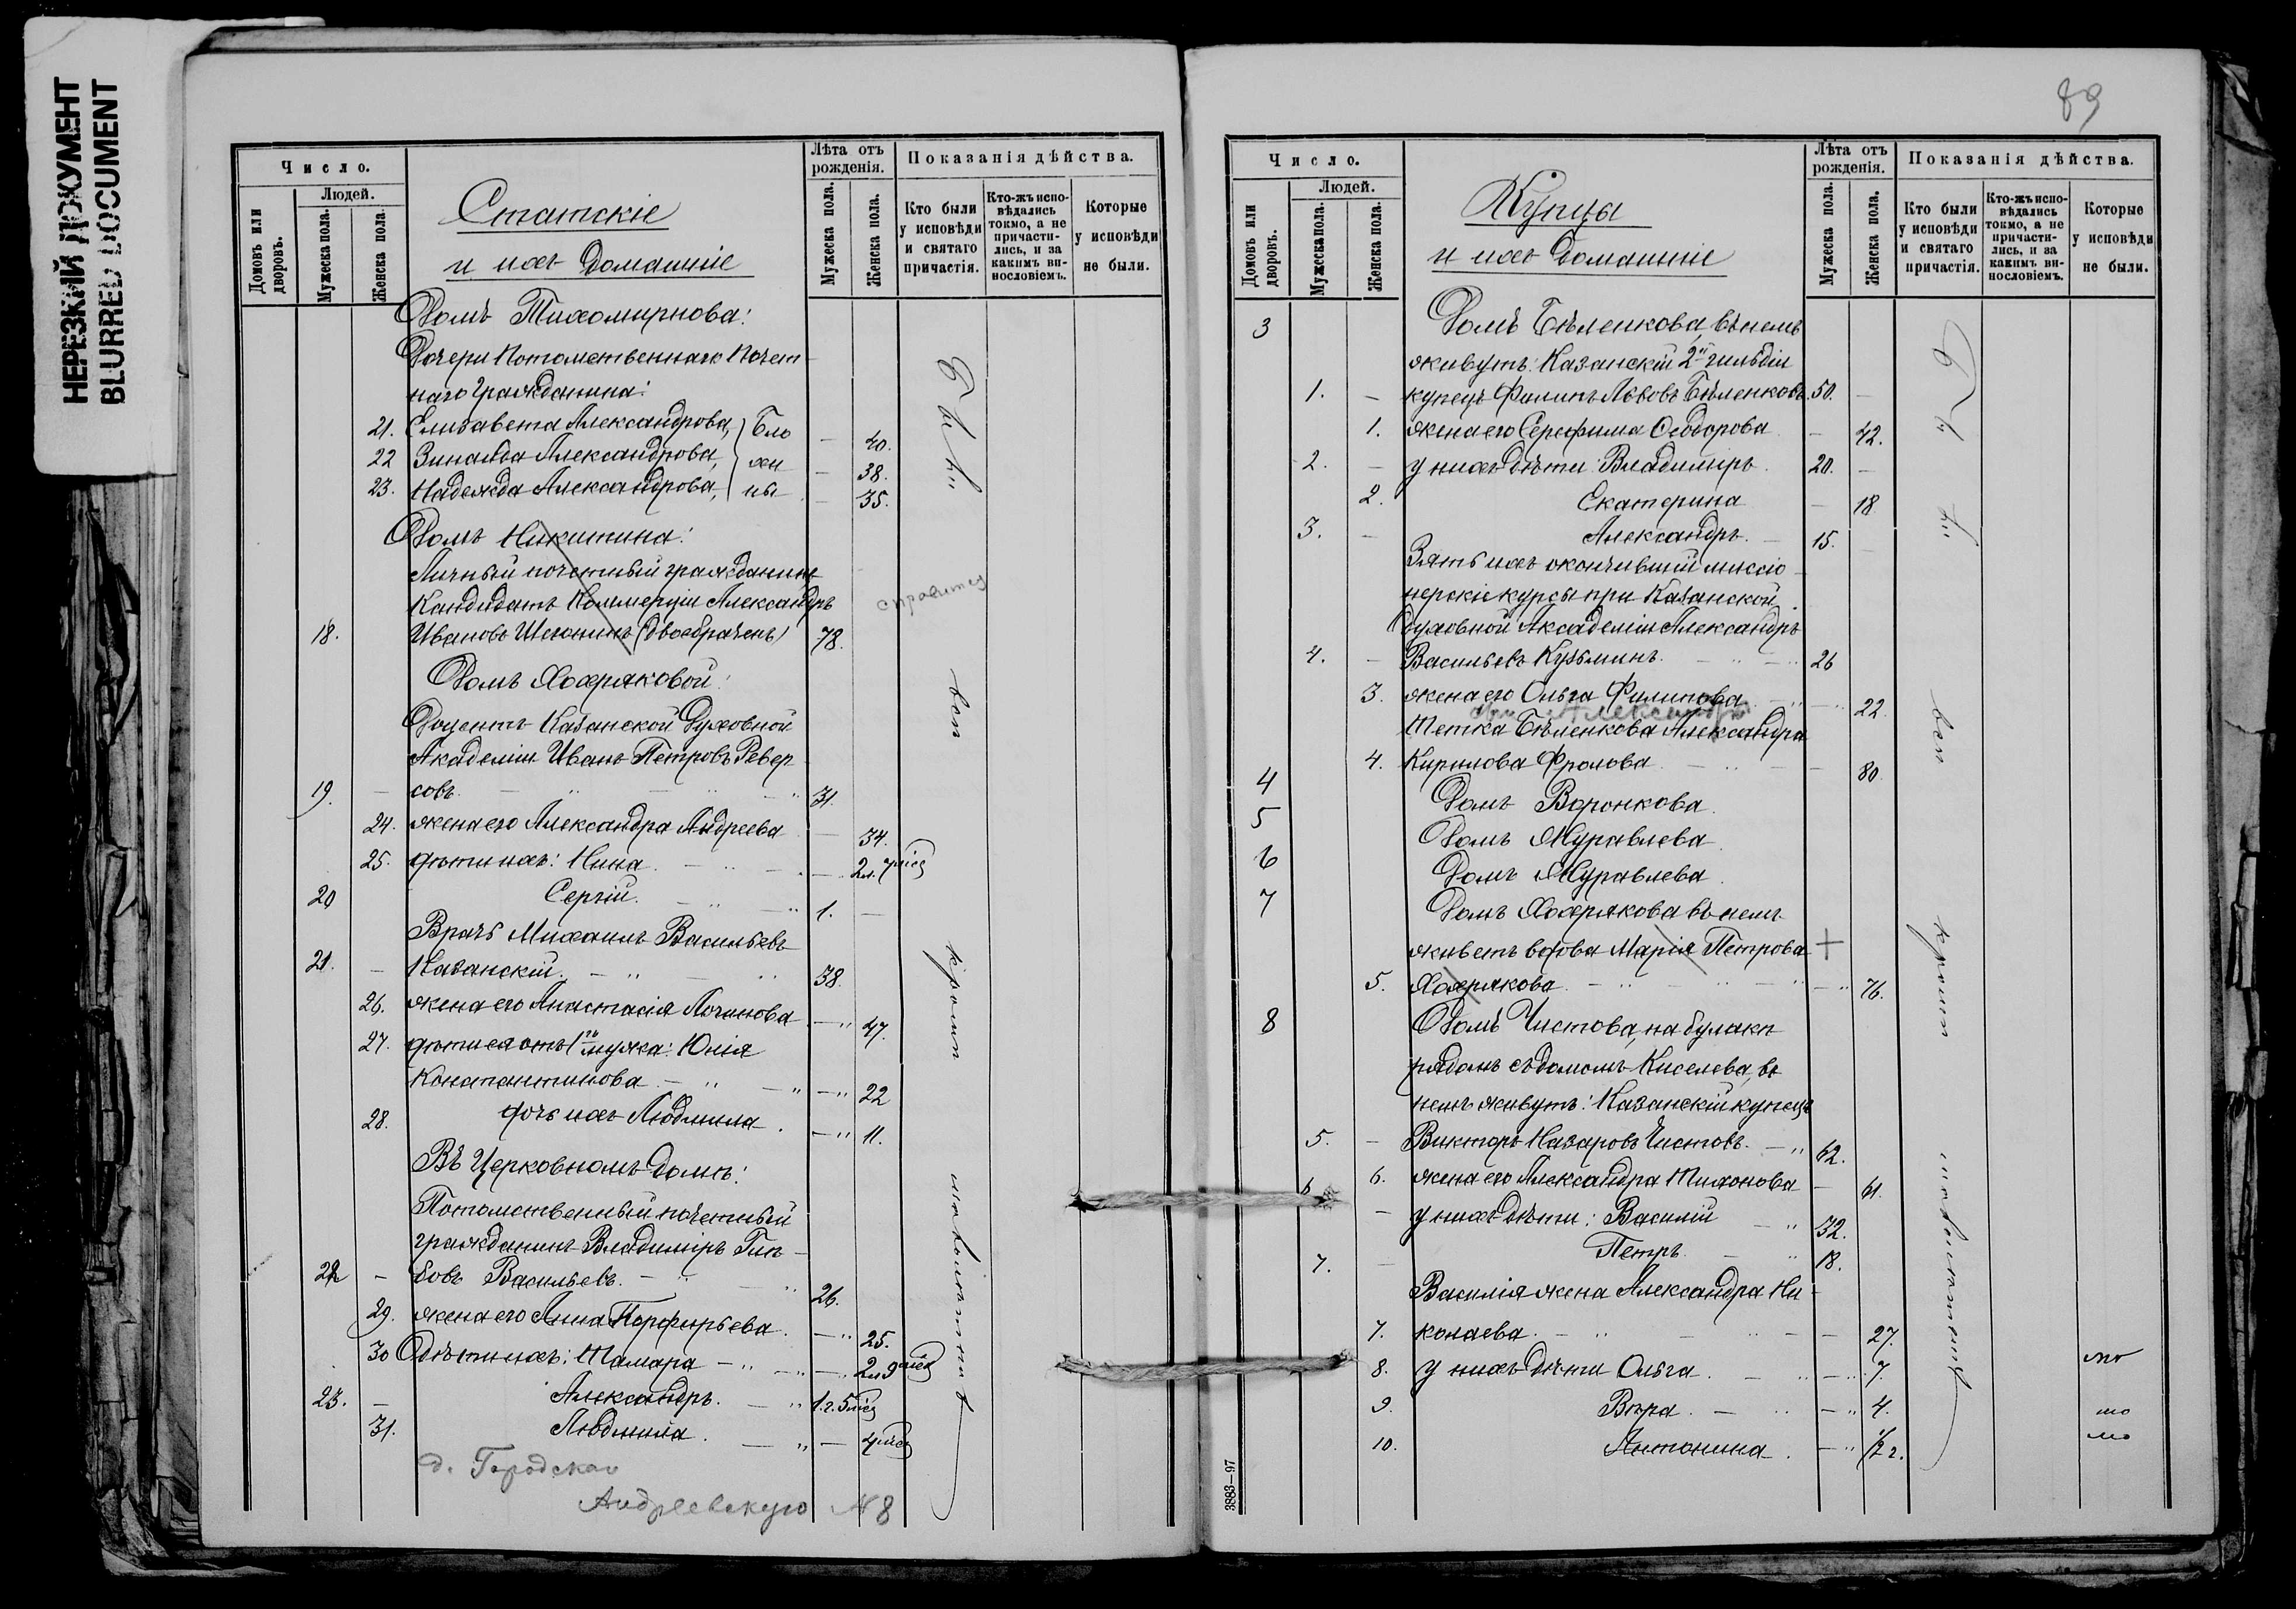 НЕРЕЗКИЙ ДОКУМЕНТ
BLURRED DOCUMENT
Число.
Людей.
Домовъ или дворовъ.
Мужеска пола.
Женска пола.
Статскіе
и ихъ домашніе
Лѣта отъ рожденія.
Мужеска пола.
Женска пола.
Показанія дѣйства.
Кто были у исповѣди и святаго причастія.
Кто-жъ исповѣдались токмо, а не причастились, и за какимъ винословіемъ.
Которые у исповѣди не были.
Домъ Тихомирнова:
Дочери Потомственнаго Почет
наго Гражданина:
21. Елизавета Александрова, Бло — 40.
22 Зинаида Александрова, жи — 38.
23. Надежда Александрова, ны — 35.
Домъ Никитина:
Личный почетный гражданинъ
Кандидатъ Коммерціи Александръ
18. Ивановъ (двоебраченъ) 78.
справится
Домъ Хохряковой:
Доцентъ Казанской Духовной
Академіи Иванъ Петровъ Ревер
19. — совъ. 31.
24. жена его Александра Андреева — 34.
25. дѣти ихъ: Нина — 2 л. 7 мѣс
20 Сергій. 1. —
Врачъ Михаилъ Васильевъ
21. — Казанскій. 38.
26. жена его Анастасія Логинова — 47.
27. дѣти ея отъ 1го мужа: Юлія
Константинова — 22
28. дочь ихъ Людмила — 11.
Въ Церковномъ домѣ:
Потомственный почетный
гражданинъ Владиміръ Глѣ
22 — бовъ Васильевъ. 26.
29. жена его Анна Порфирьева. — 25.
30 Дѣти ихъ: Тамара — 2 л 9 мѣс
23. — Александръ. 1 г. 5 мѣс
31. Людмила. — 4 мѣс
д. Городская
Андреевскую № 8
Были
вси
кромѣ
малолѣтнихъ
89
Число.
Людей.
Домовъ или дворовъ.
Мужеска пола.
Женска пола.
Купцы
и ихъ домашніе
Лѣта отъ рожденія.
Мужеска пола.
Женска пола.
Показанія дѣйства.
Кто были у исповѣди и святаго причастія.
Кто-жъ исповѣдались токмо, а не причастились, и за какимъ винословіемъ.
Которые у исповѣди не были.
3 Домъ Бѣленкова, въ немъ
живутъ: Казанскій 2й гильдіи
1. — купецъ Филипъ Львовъ Бѣленковъ 50. —
1. жена его Серафима Ѳеодорова — 42.
2. — у нихъ дѣти: Владиміръ 20. —
2. Екатерина — 18
3. — Александръ. 15. —
Зять ихъ окончившій миссіо
нерскіе курсы при Казанской
Духовной Академіи Александръ
4. — Васильевъ Кузьминъ. 26
3. жена его Ольга Филипова — 22
Александръ
Тетка Бѣленкова Александра
4. Кирилова Фролова — 80
4 Домъ Воронкова
5 Домъ Муравлева
6 Домъ Муравлева
7 Домъ Хохрякова въ немъ
живетъ вдова Марія Петрова +
5. Хохрякова — 76.
8 Домъ Чистова, на булакѣ
рядомъ съ домомъ Киселева, въ
немъ живутъ: Казанскій купецъ
5. — Викторъ Назаровъ Чистовъ. 62.
6. жена его Александра Тихонова — 61.
6 — у нихъ дѣти: Василій 32.
7. — Петръ 18.
Василія жена Александра Ни
7. колаева. — 27.
8. у нихъ дѣти Ольга — 7. мо
9. Вѣра. — 4. мо
10. Антонина. — 1/2 г. мо
Были
вси
кромѣ
малолѣтнихъ
3883—97